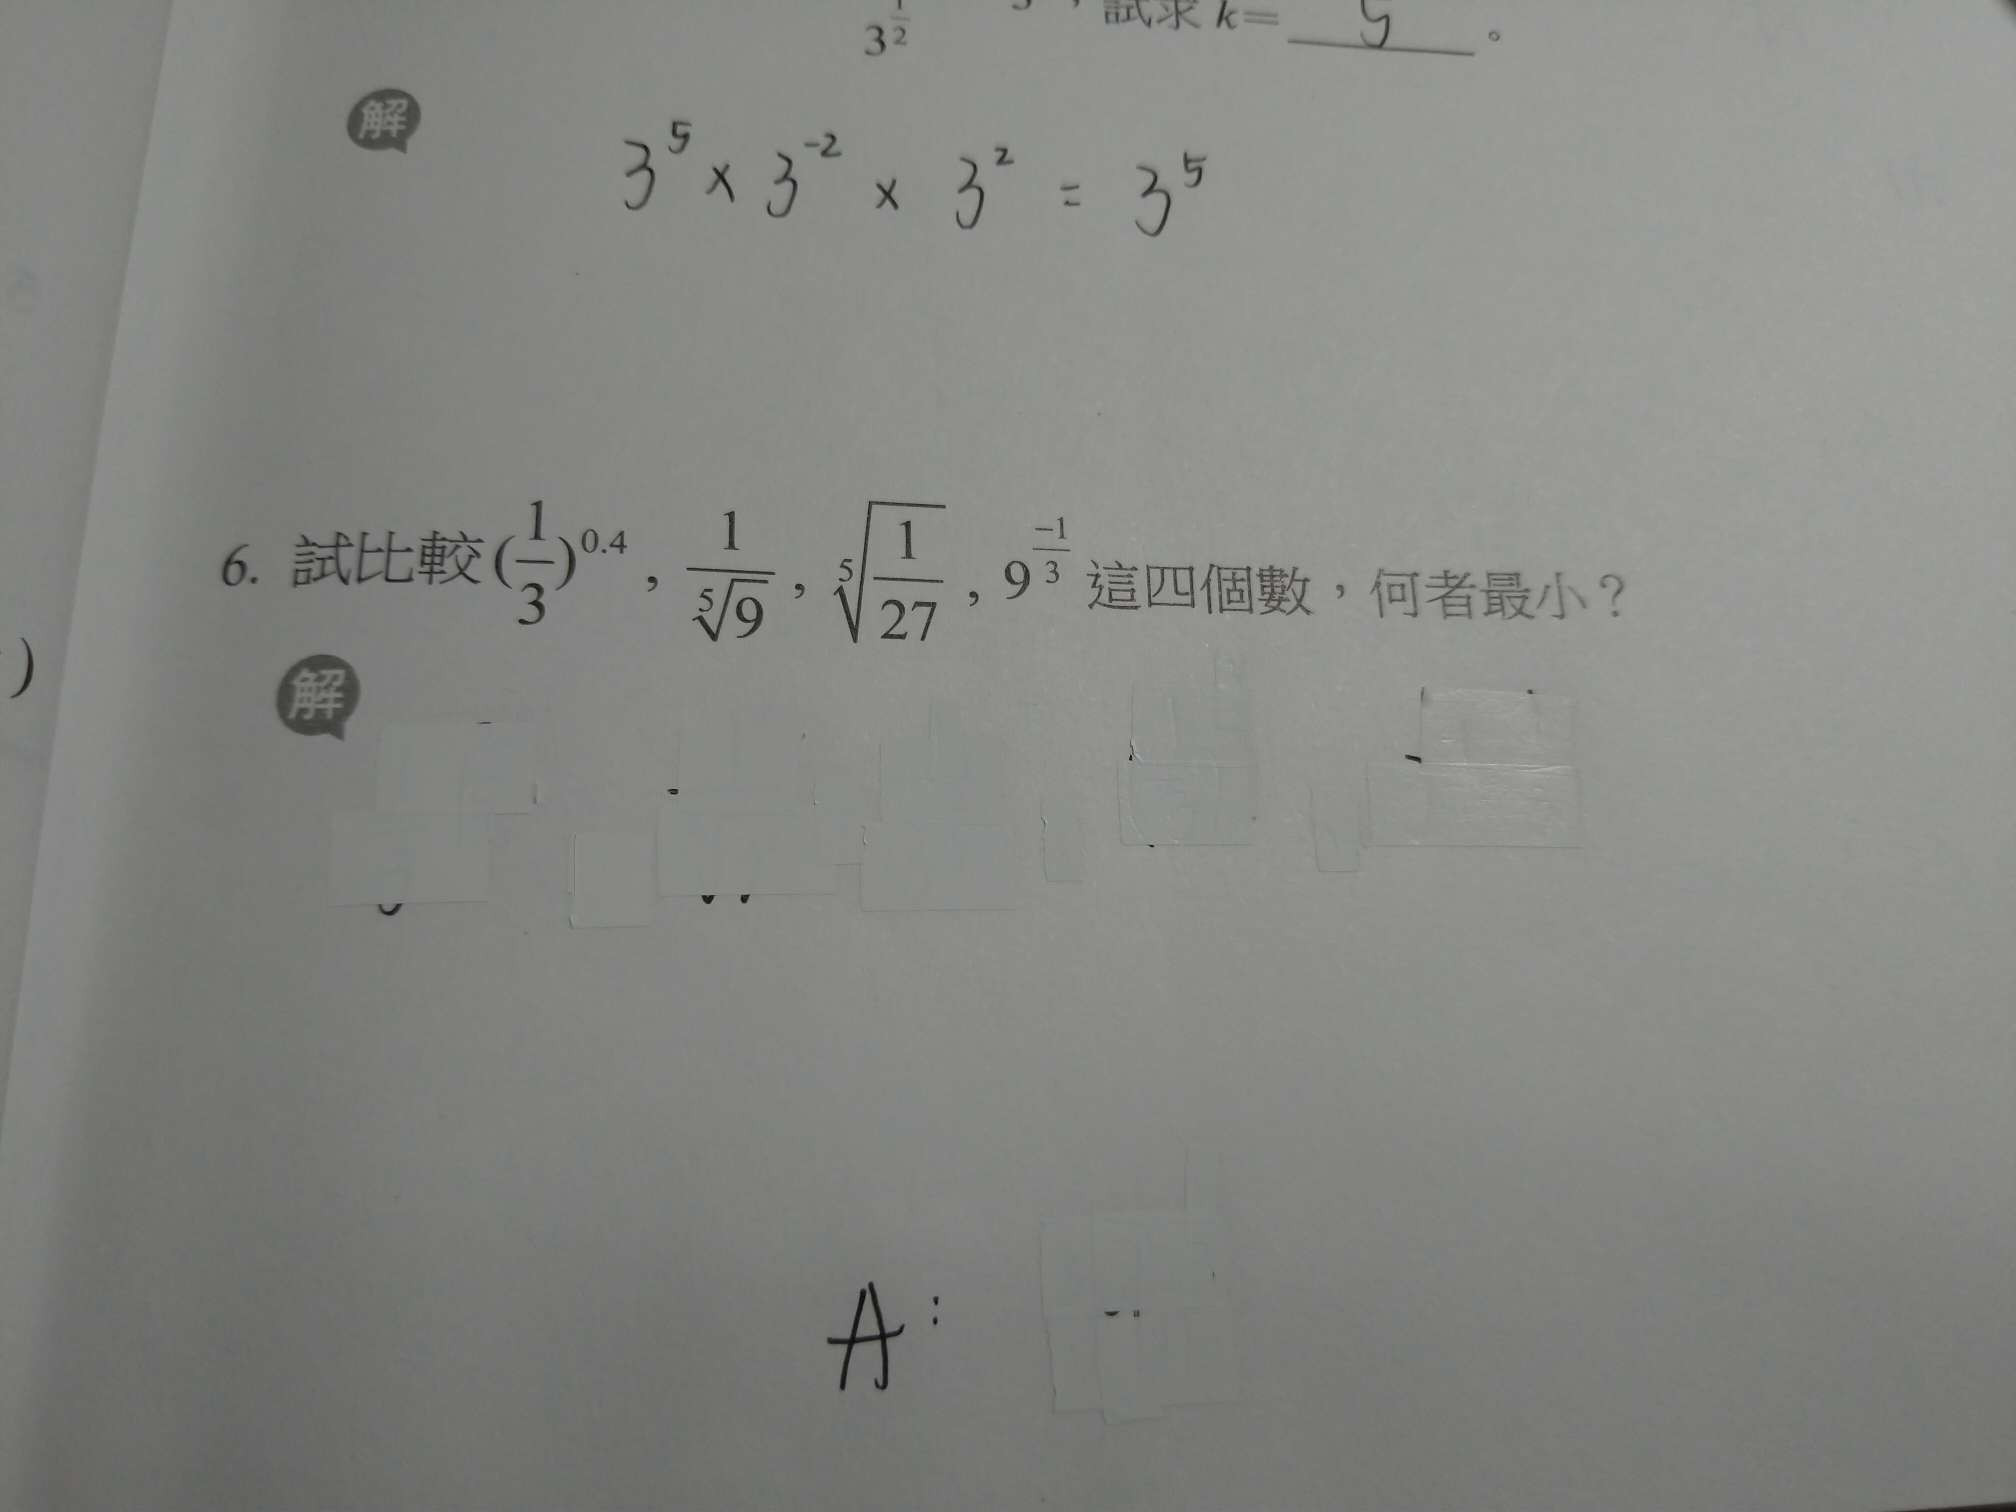 3^{\frac{1}{2}} ，試求 k= 5 。
解
3^5 × 3^{-2} × 3^2 = 3^5
6. 試比較(\frac{1}{3})^{0.4} , \frac{1}{\sqrt[5]{9}} , \sqrt[5]{\frac{1}{27}} , 9^{\frac{-1}{3}} 這四個數，何者最小？
)
解
A: